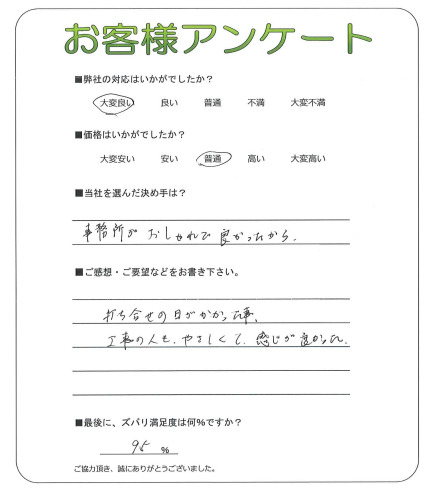 お客様アンケート
■弊社の対応はいかがでしたか？
大変良い 良い 普通 不満 大変不満
■価格はいかがでしたか？
大変安い 安い 普通 高い 大変高い
■当社を選んだ決め手は？
事務所が おしゃれで 良かったから、
■ご感想・ご要望などをお書き下さい。
打ち合せの日がかかった事、
工事の人も、やさしくて、感じが良かった。
■最後に、ズバリ満足度は何％ですか？
95 ％
ご協力頂き、誠にありがとうございました。